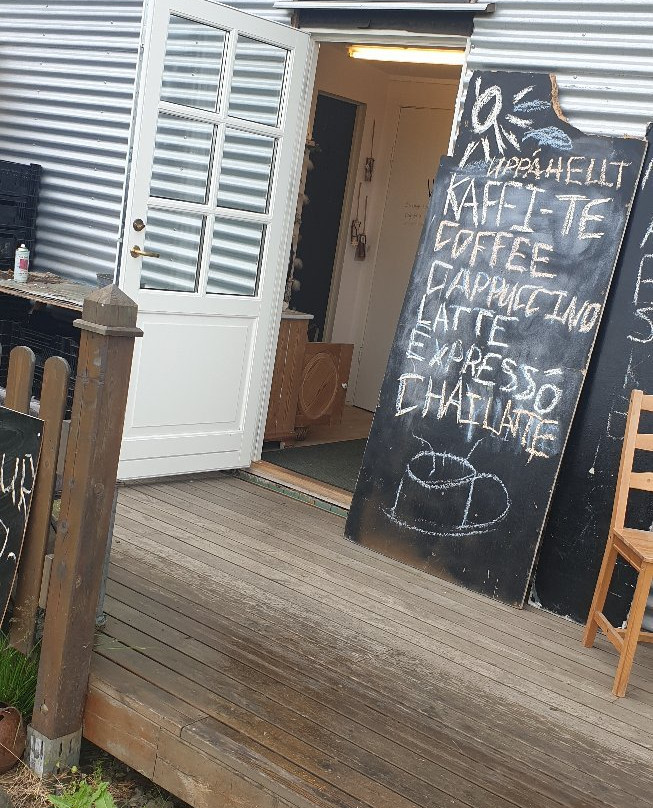 UPPÁHELLT
KAFFI-TE
COFFEE
CAPPUCCINO
LATTE
EXPRESSÓ
CHAI LATTE